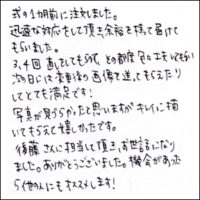 式の1カ月前に注文しました。
迅速な対応をして頂き余裕を持って届けて
もらいました。
3、4回直してもらって、その都度色々工夫いただい
次の日には変更後の画像を送ってもらえたり
してとても満足です!
写真が見づらかったと思いますがキレイに描
いてもらえて嬉しかったです。
後藤さんに担当して頂き、お世話になり
ました。ありがとうございました。機会があった
ら他の人にもオススメします!